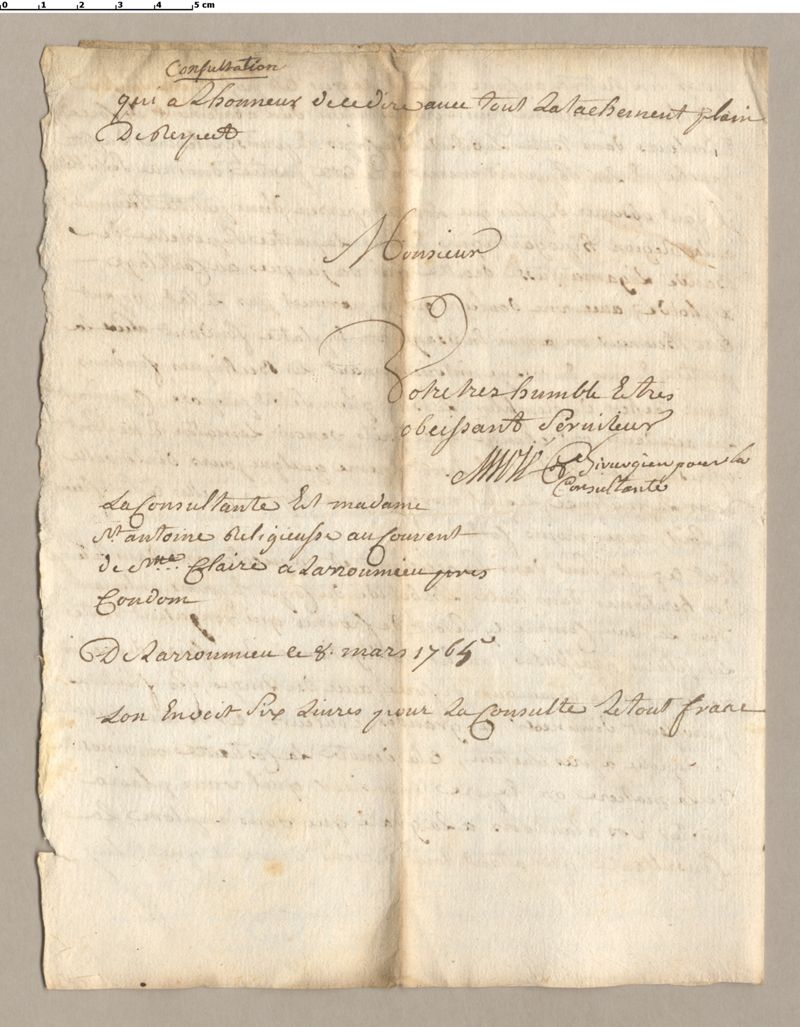 0 1 2 3 4 5 cm
Consultation
qui a Lhonneur de ce dire avec tout Latachement plain
De Respect
Monsieur
Votre tres humble Et tres
obeissant Serviteur
Chirurgien pour la
Consultante
La Consultante Est madame
St antoine Religieusse au Couvent
de Ste Claire a Larroumieu pres
Condom
De Larroumieu le 8. mars 1765
Lon Envoit Six Livres pour La Consulte Le tout franc